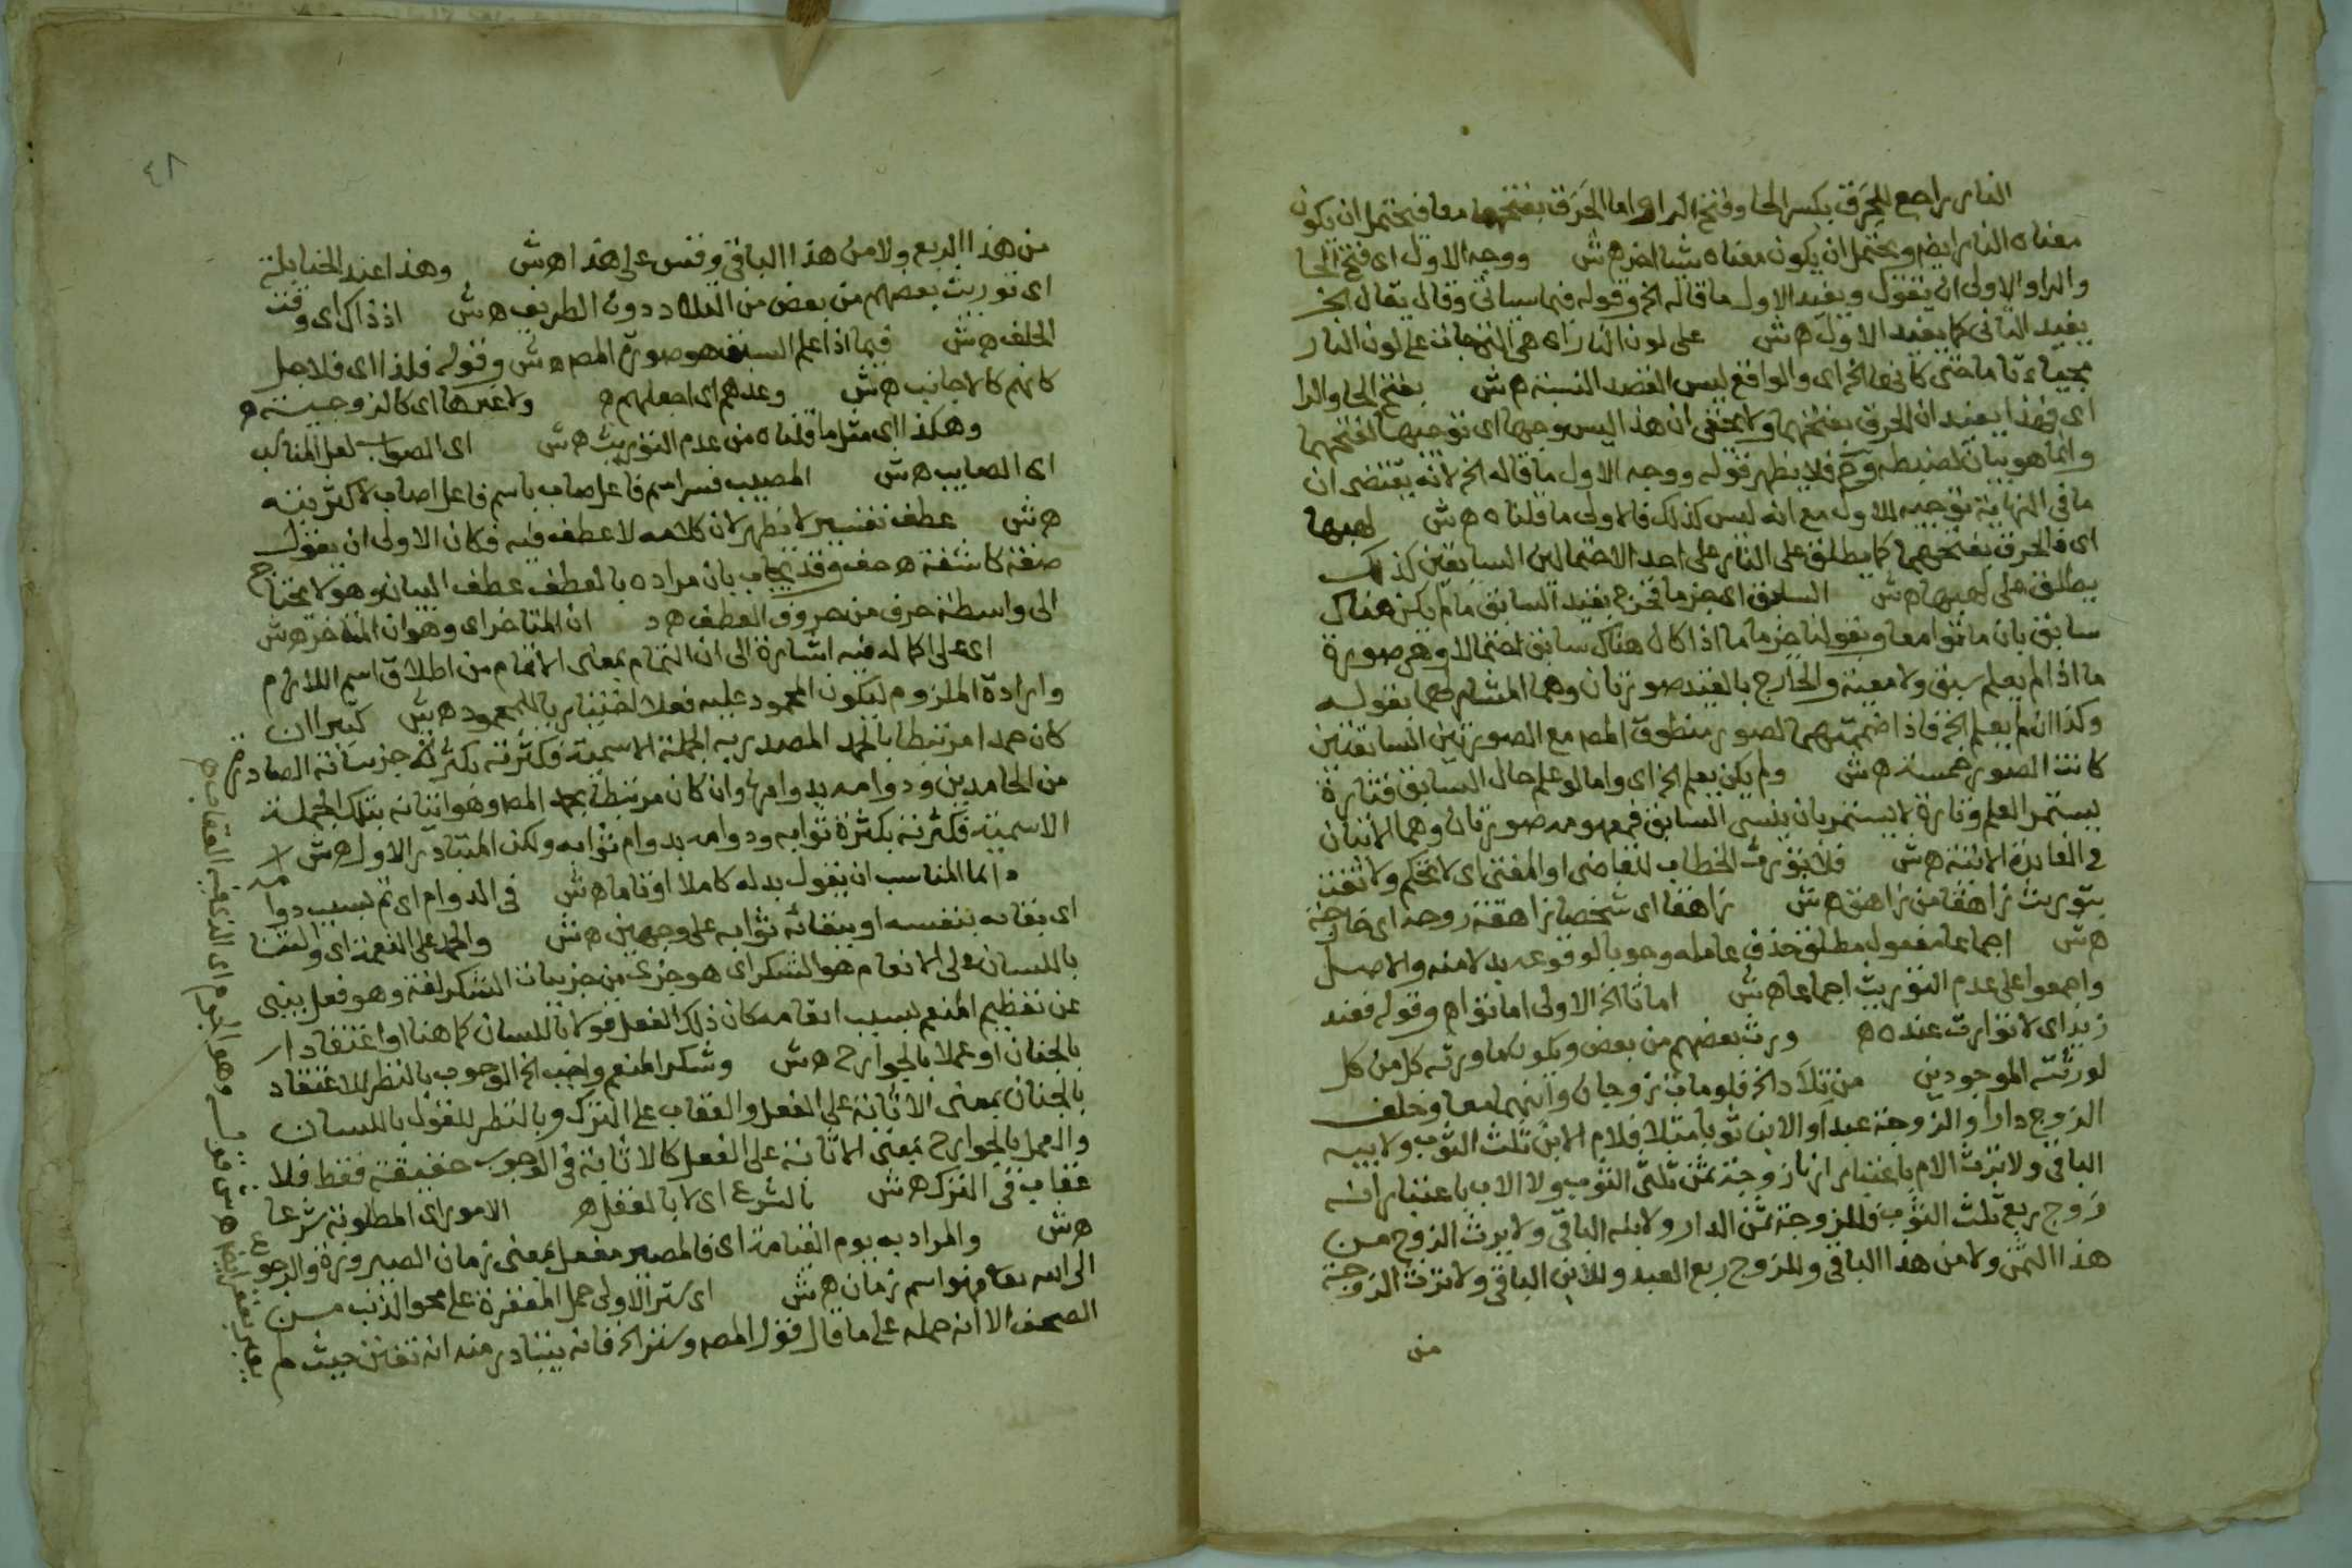 النار راجع للحرق بكسر الحا وفتح الرا واما الحرق بفتحهما معا فيحتمل ان يكون
معناه النار ايضا ويحتمل ان يكون معناه شيا اخر هش ووجه الاول اى فتح الحا
والرا والاولى ان يقول ويفيد الاول ما قاله الخ وقوله فيما سياتى وقال يقال الخ
يفيد الثانى كما يفيد الاول هش على لون النار اى هى التهجات على لون النار
بفتح الحا والرا والواقع ليس القصد النسبة هش
اى فهذا يفيد ان الحرق بفتحهما ولا يخفى ان هذا ليس وجها اى توجيها لفتحهما
وانما هو بيان لضبطه وح فلا يظهر قوله ووجه الاول ما قاله الخ لانه يقتضى ان
ما فى النهاية توجيه للاول مع انه ليس كذلك فالاولى ما قلناه هش لهبها
اى فالحرق بفتحهما كما يطلق على النار على احد الاحتمالين السابقين كذلك
يطلق على لهبها هش السابق اى جزما فخرج بقيد السابق ما لم يكن هناك
سابق بان ماتوا معا وبقولنا جزما ما اذا كان هناك سابق احتمالا وهى صورة
ما اذا لم يعلم سبق ولا معية والخارج بالقيد صورتان وهما المشار لهما بقوله
وكذا ان لم يعلم الخ فاذا ضممتهما لصور منطوق المص مع الصورتين السابقتين
كانت الصور خمسة هش ولم يكن يعلم الخ اى واما لو علم حال السابق فتارة
يستمر العلم وتارة لا يستمر بان ينسى السابق فمفهومه صورتان وهما الاتيتان
فى الفايدة الاتية هش فلا تورث الخطاب للقاضى او المفتى اى لا تحكم ولا تفت
بتوريث زاهقا من زاهق هش زاهقا اى شخصا زاهقة روحه اى خارجة
هش اجماعا مفعول مطلق حذف عامله وجوبا لوقوعه بدلا منه والاصل
واجمعوا على عدم التوريث اجماعا هش اماتا الخ الاولى اماتوا هـ وقوله فعند
زيد اى لا توارث عنده هـ ورث بعضهم من بعض ويكون ما ورثه كل من كل
لورثته الموجودين من تلاد الخ فلو مات زوجان وابنهما معا وخلف
الزوج دارا والزوجة عبدا والابن ثوبا مثلا فلام الابن ثلث الثوب ولابيه
الباقى ولا ترث الام باعتبار انها زوجة ثمن ثلثى الثوب ولا الاب باعتبار انه
زوج ربع ثلث الثوب وللزوجة ثمن الدار ولابنه الباقى ولا يرث الزوج من
هذا الثمن ولا من هذا الباقى وللزوج ربع العبد وللابن الباقى ولا ترث الزوجة
من
٤٨
من هذا الربع ولا من هذا الباقى وقس على هذا هش وهذا عند الحنابلة
اى توريث بعضهم من بعض من التلاد دون الطريف هش اذ ذاك اى وقت
الحلف هش فيما اذا علم السبق هو صورة المص هش وقوله فلذا اى فلاجل
كانهم كالاجانب هش وعدهم اى اجعلهم هـ ولا غيرها اى كالزوجية هـ
وهكذا اى مثل ما قلناه من عدم التوريث هش اى الصواب لعل المناسب
اى الصايب هش المصيب فسر اسم فاعل صاب باسم فاعل اصاب لاكثريته
هش عطف تفسير لا يظهر لان كلامه لا عطف فيه فكان الاولى ان يقول
صفة كاشفة هـ حف وقد يجاب بان مراده بالعطف عطف البيان وهو لا يحتاج
الى واسطة حرف من حروف العطف هـ د ان المتاخر اى وهو ان المتاخر هش
اى على اكماله فيه اشارة الى ان التمام بمعنى الاتمام من اطلاق اسم اللازم
وارادة الملزوم ليكون المحمود عليه فعلا اختياريا للمحمود هش كثيرا ان
كان حمدا مرتبطا بالحمد المصدر به الجملة الاسمية فكثرته بكثرة جزيياته الصادرة
من الحامدين ودوامه بدوامها وان كان مرتبطا بحمد المص وهو اتيانه بتلك الجملة
الاسمية فكثرته بكثرة ثوابه ودوامه بدوام ثوابه ولكن المتبادر الاول هش
دائما المناسب ان يقول بدله كاملا او تاما هش فى الدوام اى تم بسبب دوامه
اى بقائه بنفسه او ببقائه ثوابه على وجهين هش والحمد على النعمة اى والثنا
باللسان على الانعام هو الشكر اى هو جزى من جزييات الشكر لغة وهو فعل ينبى
عن تعظيم المنعم بسبب انعامه كان ذلك الفعل قولا باللسان كما هنا او اعتقادا
بالجنان او عملا بالجوارح هش وشكر المنعم واجب الخ الوجوب بالنظر للاعتقاد
بالجنان بمعنى الاثابة على الفعل والعقاب على الترك وبالنظر للقول باللسان
والعمل بالجوارح بمعنى الاثابة على الفعل كالاثابة فى الوجوب حقيقة فقط فلا
عقاب فى الترك هش بالشرع اى لا بالعقل هـ الامور اى المطلوبة شرعا
هش والمراد به يوم القيامة اى فالمصير مفعل بمعنى زمان الصيرورة والرجوع
الى الله تعالى فهو اسم زمان هش اى ستر الاولى حمل المغفرة على محو الذنب من
الصحف الا انه حمله على ما قال قول المص وستر الخ فانه يتبادر منه انه تفنن حيث لم